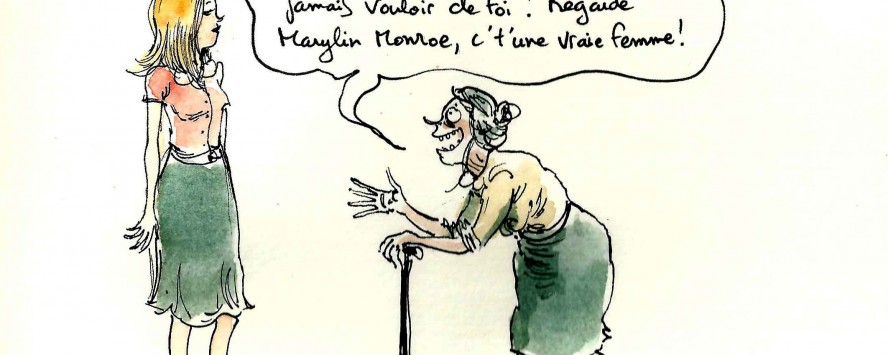 jamais vouloir de toi ! Regarde
Marylin Monroe, c't'une vraie femme !